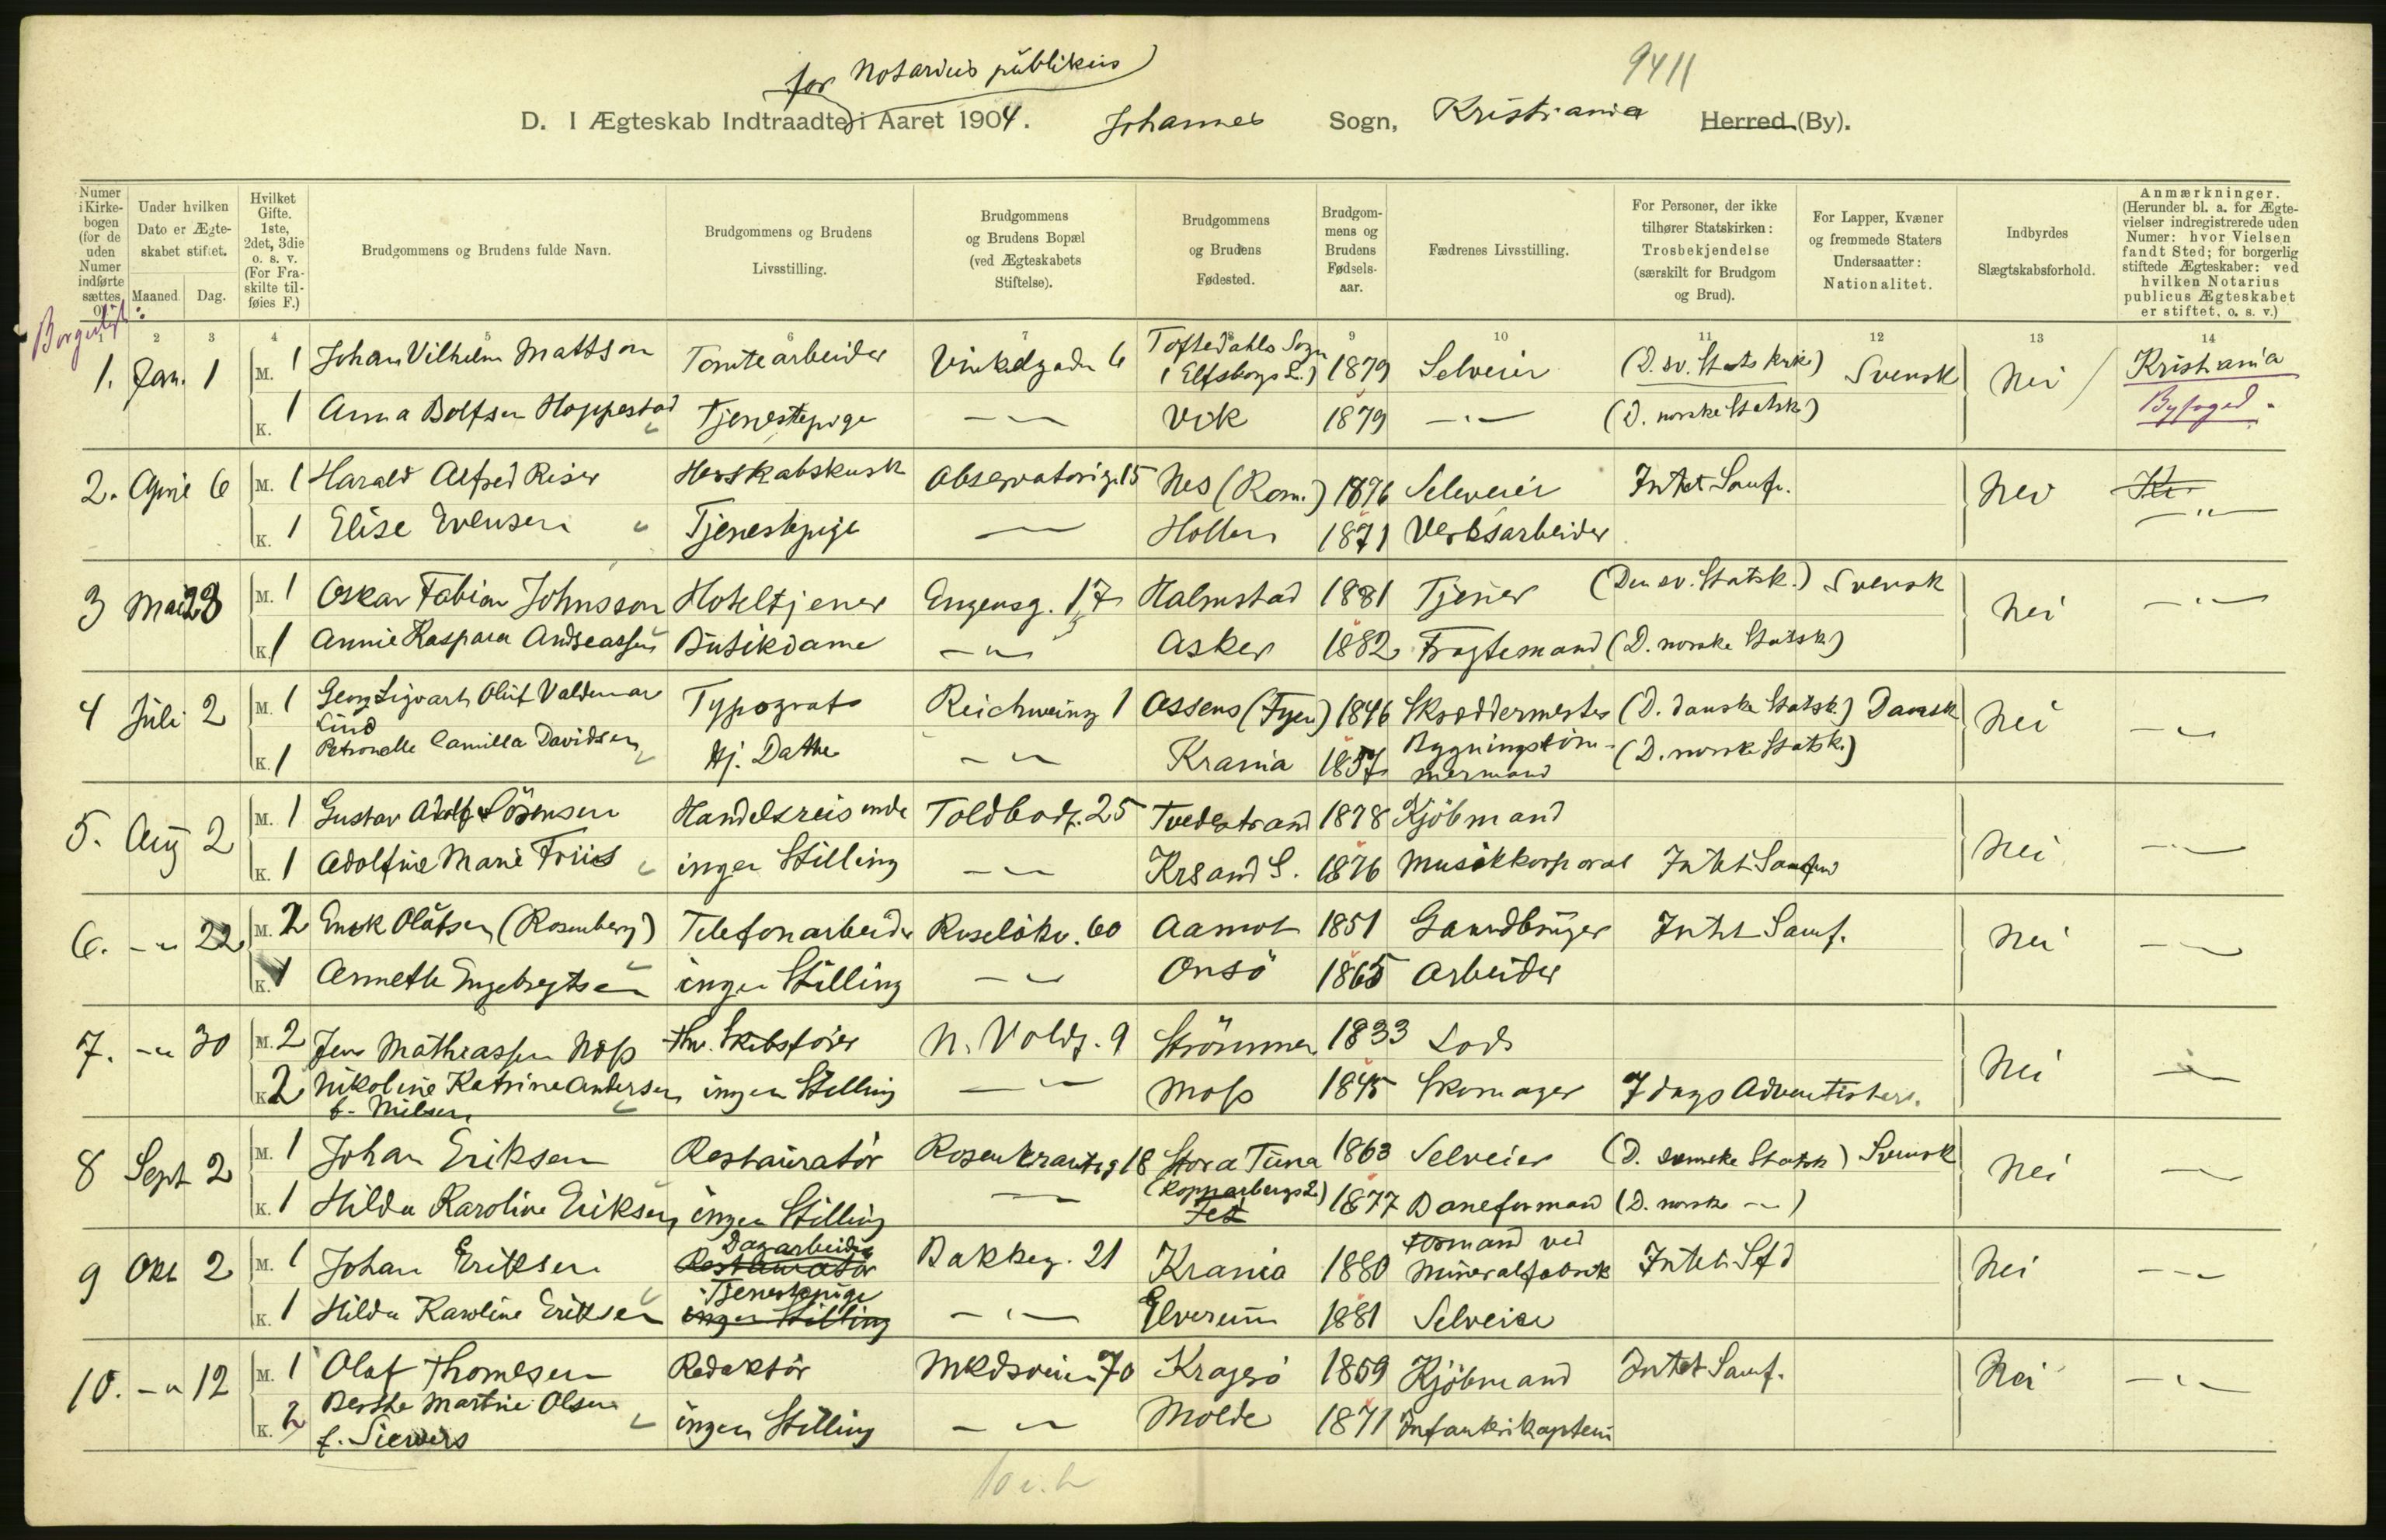 for Notarius publikus
9411
D. I Ægteskab Indtraadte i Aaret 1904. Johannes Sogn, Kristiania Herred (By).
Numer i Kirke-bogen (for de uden Numer indførte sættes 0).
Under hvilken Dato er Ægte-skabet stiftet.
Maaned. Dag.
Hvilket Gifte. 1ste, 2det, 3die o. s. v. (For Fra-skilte til-føies F.)
Brudgommens og Brudens fulde Navn.
Brudgommens og Brudens Livsstilling.
Brudgommens og Brudens Bopæl (ved Ægteskabets Stiftelse).
Brudgommens og Brudens Fødested.
Brudgom-mens og Brudens Fødsels-aar.
Fædrenes Livsstilling.
For Personer, der ikke tilhører Statskirken: Trosbekjendelse (særskilt for Brudgom og Brud).
For Lapper, Kvæner og fremmede Staters Undersaatter: Nationalitet.
Indbyrdes Slægtskabsforhold.
Anmærkninger. (Herunder bl. a. for Ægte-vielser indregistrerede uden Numer: hvor Vielsen fandt Sted; for borgerlig stiftede Ægteskaber: ved hvilken Notarius publicus Ægteskabet er stiftet, o. s. v.)
Borgerligt:
1 2 3 4 5 6 7 8 9 10 11 12 13 14
1. Jan. 1 M. 1 Johan Vilhelm Mattson Tomtearbeider Vinkelgaden 6 Toftedahls Sogn (Elfsborgs L.) 1879 Selveier (D. sv. Stats kirk) Svensk Nei Kristiania
K. 1 Anna Bolfsen Hoppestad Tjenestepige — " — Vik 1879 — " — (D. norske Statsk) Byfoged.
2. April 6 M. 1 Harald Alfred Riser Herskabskusk Observatorieg. 15 Nes (Rom.) 1876 Selveier Intet Samf. Nei Kr. — " —
K. 1 Elise Evensen Tjenestepige — Hollen 1871 Verksarbeider
3 Mai 28 M. 1 Oskar Fabian Johnsson Hoteltjener Eugensg. 17 Halmstad 1881 Tjener (Den sv. Statsk.) Svensk Nei — " —
K. 1 Annie Kaspara Andreassen Butikdame — " — Asker 1882 Fragtemand (D. norske Statsk)
4 Juli 2 M. 1 Georg Sigvart Oluf Valdemar Lind Typograf Reichweing 1 Assens (Fyen) 1846 Skræddermester (D. danske Statsk.) Dansk Nei — " —
K. 1 Petronelle Camilla Davidsen Hj. Datter — " — Krania 1857 Bygningstøm-mermand (D. norske Statsk.)
5. Aug 2 M. 1 Gustav Adolf Sörensen Handelsreisende Toldbodg. 25 Tvedestrand 1878 Kjöbmand Nei — " —
K. 1 Adolfine Marie Friis ingen Stilling — " — Krsand S. 1876 Musikkorporal Intet Samfund
6. — " 22 M. 2 Erick Olafsen (Rosenberg) Telefonarbeider Ruselökv. 60 Aamot 1851 Gaardbruger Intet Samf. Nei — " —
K. 1 Annette Engebregtsen ingen Stilling — " — Onsö 1865 Arbeider
7. — " 30 M. 2 Jens Mathiassen Næss fhv. Skibsfører N. Voldg. 9 Strömmen 1833 Lods Nei — " —
K. 2 Nikoline Katrine Andersen f. Nilsen ingen Stilling — " — Moss 1845 Skomager 7 dags Adventister.
8 Sept 2 M. 1 Johan Eriksen Restauratör Rosenkrantzg 18 Stora Tuna (Kopparbergs L.) 1863 Selveier (D. svenske Statsk) Svensk Nei — " —
K. 1 Hilda Karoline Eriksen ingen Stilling — " — Fet 1877 Baneformand (D. norske — " —)
9 Okt 2 M. 1 Johan Eriksen Restauratör Dagarbeider Bakkeg. 21 Krania 1880 Formand ved Mineralfabrik Intet Sfd Nei — " —
K. 1 Hilda Karoline Eriksen ingen Stilling Tjenestepige — " — Elverum 1881 Selveier
10. — " 12 M. 1 Olaf Thomesen Redaktör Markdsveien 70 Kragerö 1859 Kjöbmand Intet Samf. Nei — " —
K. 2 Berthe Martine Olsen f. Sievers ingen Stilling — " — Molde 1871 Infanterikaptein